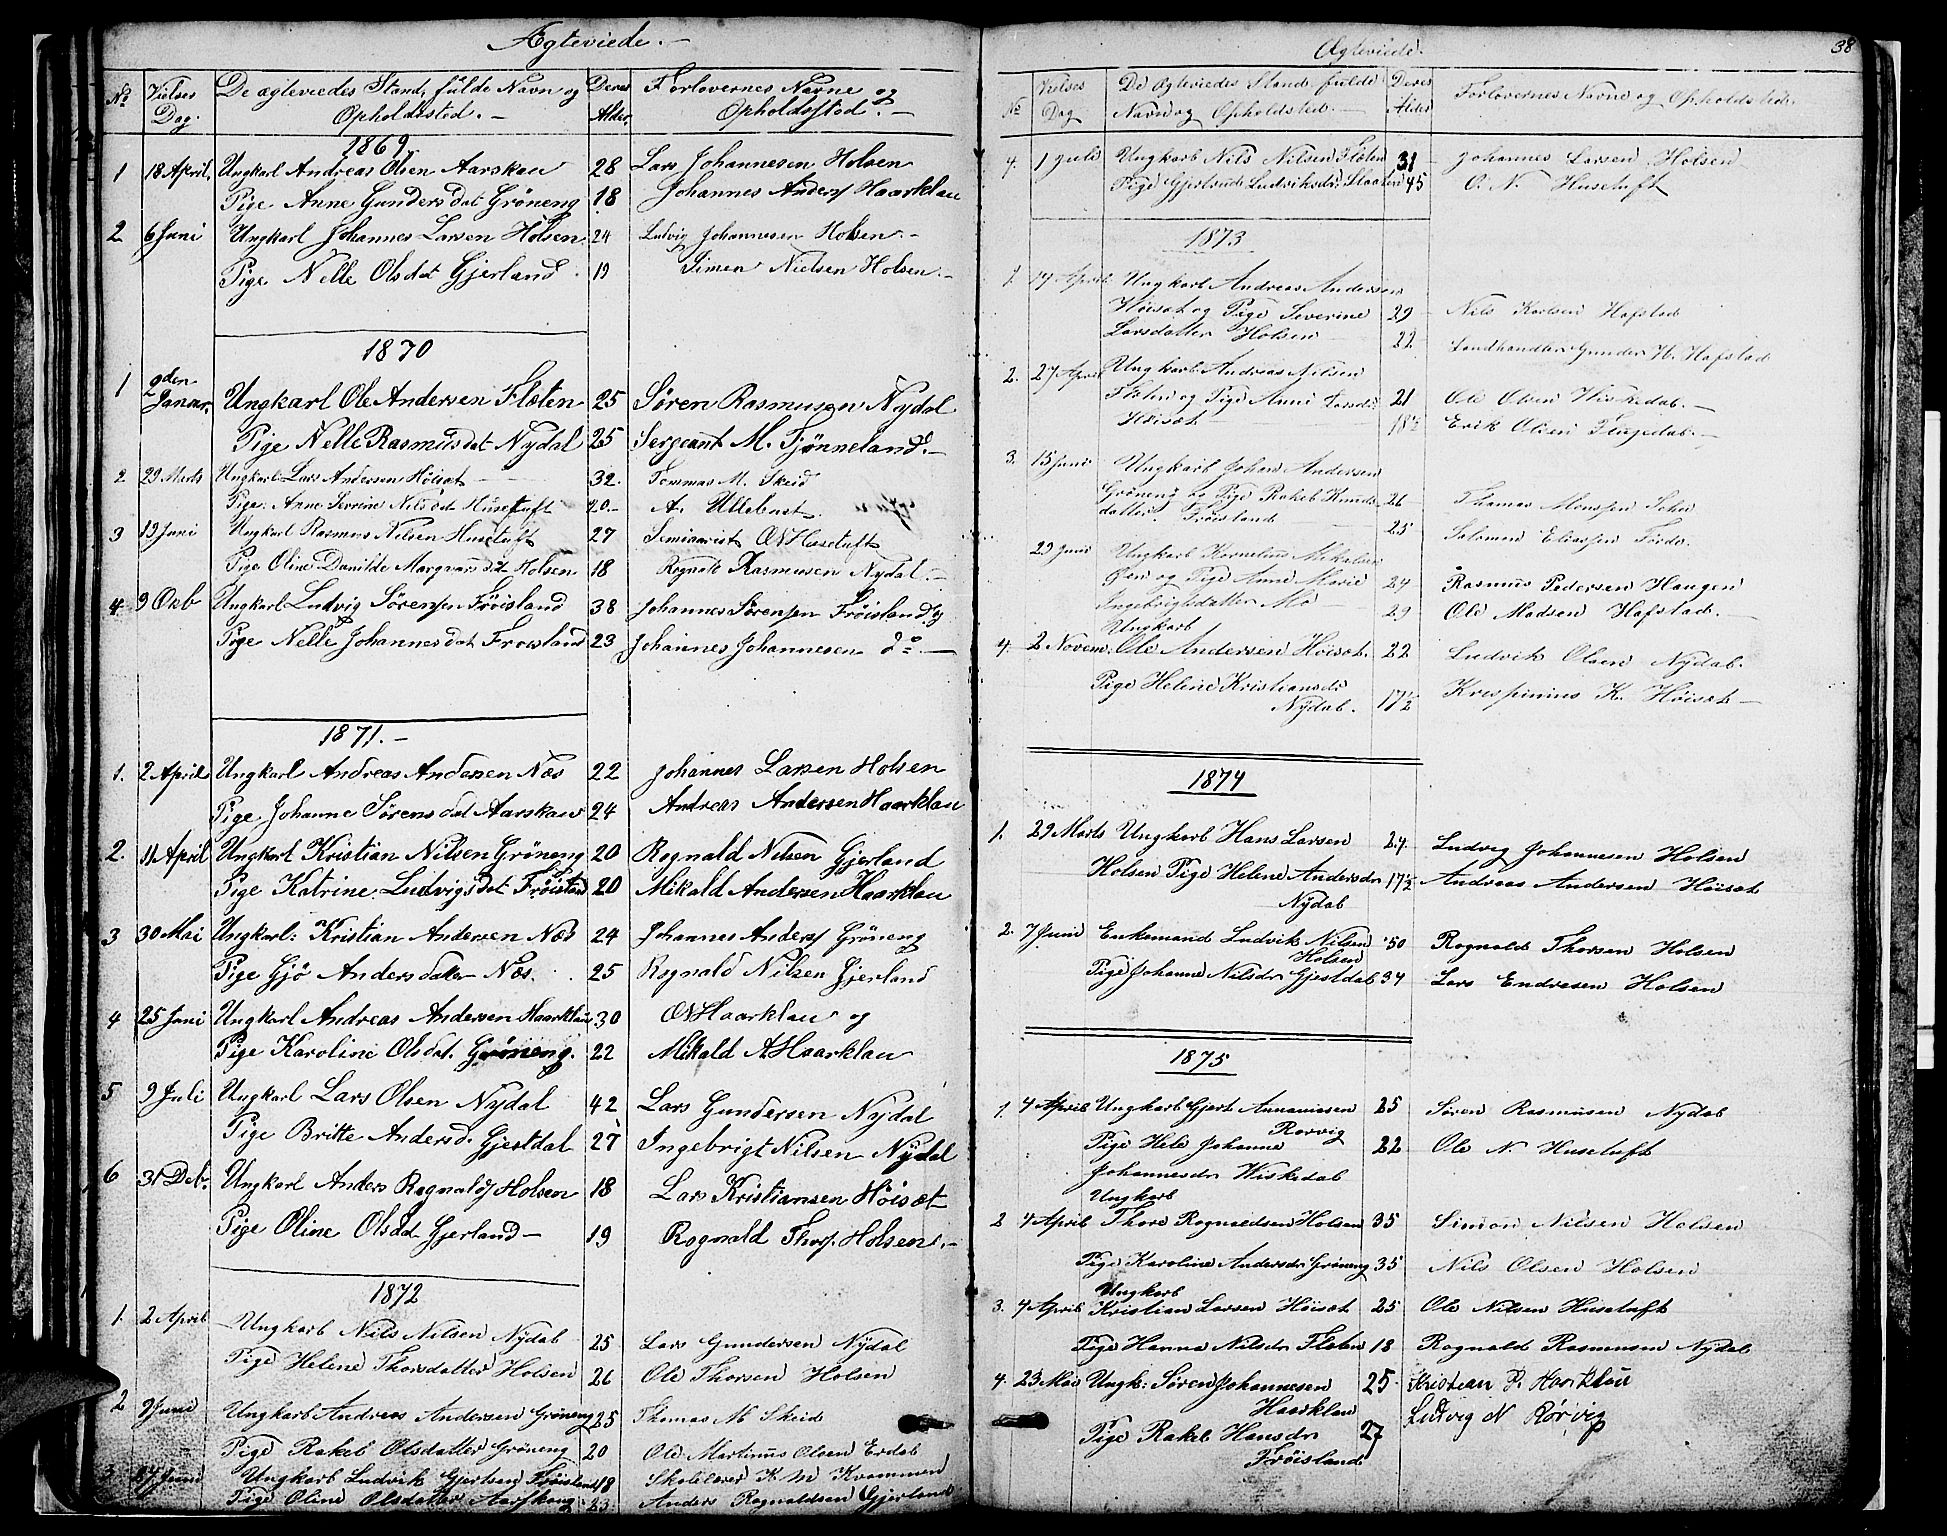 Ægteviede. —
No Vielses Dag. De ægteviedes Stand, fulde Navn og Opholdssted. — Deres Alder. Forlovernes Navne og Opholdssted. —
1869
1 18 April. Ungkarl Andreas Olsen Aarskau 28 Lars Johannesen Holsen
Pige Anne Gundersdat Gröneng 18 Johannes Anders Haarklau
2 6 Juni Ungkarl Johannes Larsen Holsen 24 Ludvig Johannesen Holsen. –
Pige Nelle Olsdat Gjerland 19 Simen Nielsen Holsen. –
1870
1 2den Januar, Ungkarl Ole Andersen Flæten 25 Søren Rasmusen Nydal
Pige Nelle Rasmusdat Nydal 25 Sergeant M. Tjønneland. –
2 29 Marts Ungkarl Lars Andersen Høisæt 32. Tommas M. Skeid
Pige. Anne Serine Nilsdat Husetuft 20 – A. Ullebust
3 19 Juni Ungkarl Rasmus Nilsen Husetuft 27 Seminarist ON Husetuft
Pige Oline Danilde Margvarsdat Holsen 18 Rognald Rasmusen Nydal. –
4 9 Okb Ungkarl Ludvig Sörensen Fröisland 38 Johannes Sörensen Fröisland og
Pige Nelle Johannesdat Froisland 23 Johannes Johannesen do. —
1871. –
1. 2 April Ungkarl Andreas Andersen Næs 22 Johannes Larsen Holsen
Pige Johanne Sörensdat Aarskau 24 Andreas Andersen Haarklau
2. 11 April Ungkarl Kristian Nilsen Gröneng 20 Rognald Nilsen Gjerland
Pige Katrine Ludvigsdat Fröisland 20 Mikald Andersen Haarklau
3 30 Mai Ungkarl: Kristian Andersen Næs 24 Johannes Anders Gröneng
Pige Gjö Andersdater Næs. 25 Rognald Nilsen Gjerland
4 25 Juni Ungkarl Andreas Andersen Haarklau 30 ON Haarklau og
Pige Karoline Olsdat. Gröneng. 22 Mikald A Haarklau
5 9 Juli Ungkarl Lars Olsen Nydal 42 Lars Gundersen Nydal
Pige Britte Andersd. Gjestdal 27 Ingebrigt Nilsen Nÿdal
6 31 Deb. Ungkarl Anders Rognalds Holsen 18 Lars Kristiansen Höisæt
Pige Oline Olsdat Gjerland – 19 Rognald Thors. Holsen. –
1872
1. 2 April Ungkarl Nils Nilsen Nÿdal 25 Lars Gundersen Nÿdal
Pige Helene Thorsdatter Holsen 26 Ole Thorsen Holsen
2 9 Juni Ungkarl Andreas Andersen Gröneng 25 Thomas M Skeid
Pige Rakel Olsdatter Gröneng 20 Ole Martinus Olsen Erdal
3 17 Juni Ungkarl Ludvik Gjertsen Fröisland 18 Skolelærer K M Kvammen
Pige Oline Olsdatter Aarskoug 23 Anders Rognaldsen Gjerland
Ægteviede. 38
No Vielses Dag De Ægteviedes Stand fulde Navn og Opholdsted. — Deres Alder Forlovernes Navne og Opholdsted.
4. 1 Juli Ungkarl Nils Nilsen Flæten 31 Johannes Larsen Holsen
Pige Gjertrude Ludviksdr. 45 O. N. Husetuft
1873
1 14 April Ungkarl Andreas Andersen
Höisæt og Pige Severine 29 Nils Karlsen Hafstad
Larsdatter Holsen 22 Landhandler Gunder H. Hafstad
2. 27 April Ungkarl Andreas Nilsen
Flæten og Pige Anne Larsdr. 21 Ole Olsen Wiskedal. –
Höisæt – 18½ Erik Olsen Flugedal. –
3. 15 Juni Ungkarl Johan Andersen
Gröneng og Pige Rakel Knuds 26 Thomas Monssen
datter. Fröisland 25 Salomon Eliassen Förde.
29 Juni Ungkarl Kornelius Mikalsen
Øen og Pige Anne Marie 24 Rasmus Pedersen Haugen
Ingebrigtsdatter Mo – 29 Ole Madsen Hafstad. –
Ungkarl
4. 2 Novem. Ole Andersen Höisæt. 22 Ludvik Olsen Nÿdal.
Pige Helene Kristiansdr Nÿdal. 17½ Krespinius K. Höisæt –
1874
1. 29 Marts Ungkarl Hans Larsen 24. Ludvig Johannesen Holsen
Holsen Pige Helene Andersdr Nÿdal 17½ Andreas Andersen Höisæt
2. 7 Juni Enkemand Ludvik Nilsen Holsen 50 Rognald Thorsen Holsen
Pige Johanne Nilsdr Gjestdal 34 Lars Endresen Holsen
1875
1. 4 April Ungkarl Gjert Annanissen Rorvig 25 Søren Rasmusen Nydal
Pige Hele Johanne 22 Ole N. Husetuft
Johannesdr Wiskedal
Ungkarl
2 4 April Thore Rognaldsen Holsen 35 Simon Nilsen Holsen
Pige Karoline Andersdr Gröneng 35 Nils Olsen Holsen
Ungkarl
3. 4 April Kristian Larsen Höisæt 25 Ole Nilsen Husetuft
Pige Hanna Nilsdr Flæten 18 Rognald Rasmusen Nydal
4. 23 Mai Ungk: Søren Johannesen Haarklau 25 Kristian P. Haarklau
Pige Rakel Hansdr Fröisland 27 Ludvig N Rörvig